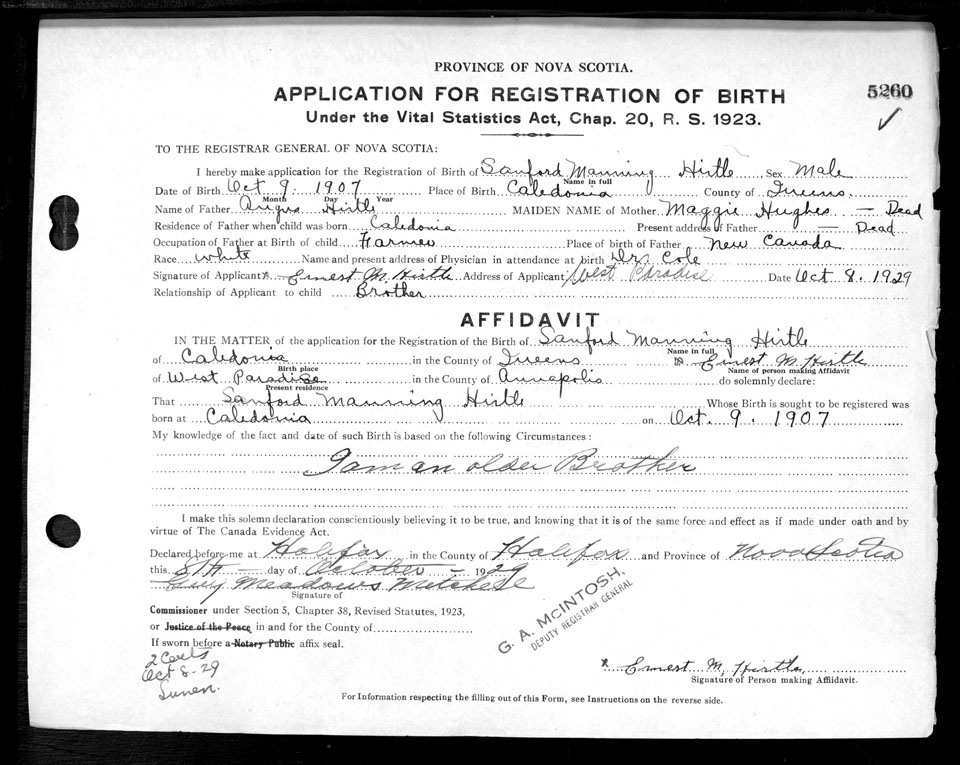 PROVINCE OF NOVA SCOTIA.
5260
APPLICATION FOR REGISTRATION OF BIRTH
Under the Vital Statistics Act, Chap. 20, R. S. 1923.
TO THE REGISTRAR GENERAL OF NOVA SCOTIA:
I hereby make application for the Registration of Birth of Sanford Manning Hirtle Sex Male
Name in full
Date of Birth Oct 9. 1907 Place of Birth Caledonia County of Queens
Month Day Year
Name of Father Angus Hirtle MAIDEN NAME of Mother Maggie Hughes — Dead
Residence of Father when child was born Caledonia Present address of Father — Dead
Occupation of Father at Birth of child Farmer Place of birth of Father New Canada
Race White Name and present address of Physician in attendance at birth Drs Cole
Signature of Applicant x Ernest M. Hirtle Address of Applicant West Paradise Date Oct 8. 1929
Relationship of Applicant to child Brother
AFFIDAVIT
IN THE MATTER of the application for the Registration of the Birth of Sanford Manning Hirtle
Name in full
of Caledonia in the County of Queens Ernest M. Hirtle
Birth place Name of person making Affidavit
of West Paradise in the County of Annapolis do solemnly declare:
Present residence
That Sanford Manning Hirtle Whose Birth is sought to be registered was
born at Caledonia on Oct. 9. 1907
My knowledge of the fact and date of such Birth is based on the following Circumstances:
I am an older Brother
I make this solemn declaration conscientiously believing it to be true, and knowing that it is of the same force and effect as if made under oath and by
virtue of The Canada Evidence Act.
Declared before me at Halifax in the County of Halifax and Province of Nova Scotia
this 8th day of October 1929
Guy Meadows Mitchell
Signature of
Commissioner under Section 5, Chapter 38, Revised Statutes, 1923,
or Justice of the Peace in and for the County of
If sworn before a Notary Public affix seal.
G. A. McINTOSH,
DEPUTY REGISTRAR GENERAL
2 Certs
Oct 8-29
Lunen.
x Ernest M. Hirtle
Signature of Person making Affidavit.
For Information respecting the filling out of this Form, see Instructions on the reverse side.